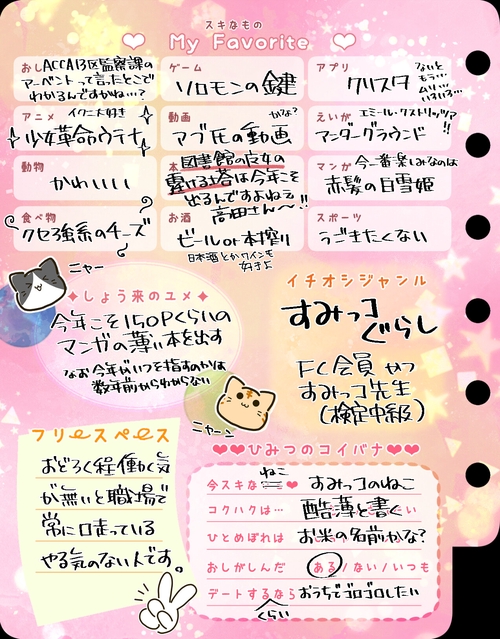 スキなもの
My Favorite
おし ACCA13区監察課の
アーベントって言ったとこで
わかるんですかね…?
ゲーム
ソロモンの鍵
アプリ
クリスタ
ないと
もう…
ムリ…
いろいろ…
アニメ イクニ大好き
少女革命ウテナ
動画 かな?
マブ氏の動画
えいが エミール・クストリッツァ
アンダーグラウンド!!
動物
かわいい
本 図書館の大魔の
マンガ 今一番楽しみなのは
赤髪の白雪姫
食べ物
クセつ強系のチーズ
お酒
ビールor本搾り
日本酒とかワインも
好きよ
スポーツ
うごきたくない
ニャー
しょう来のユメ
今年こそ150Pくらいの
マンガの薄い本を出す
なお今年がいつを指すのかは
数年前から分からない
イチオシジャンル
すみっコ
ぐらし
FC会員 かつ
すみっコ先生
(検定中級)
ニャーン
フリースペース
おどろく程働く気
が無いと職場で
常に口走っている
やる気のない人です。
ひみつのコイバナ
今スキな ねこ すみっコのねこ
コクハクは… 酷薄と書く
ひとめぼれは お米の名前かな?
おしがしんだ ある/ない/いつも
デートするなら おうちでゴロゴロしたい
くらい